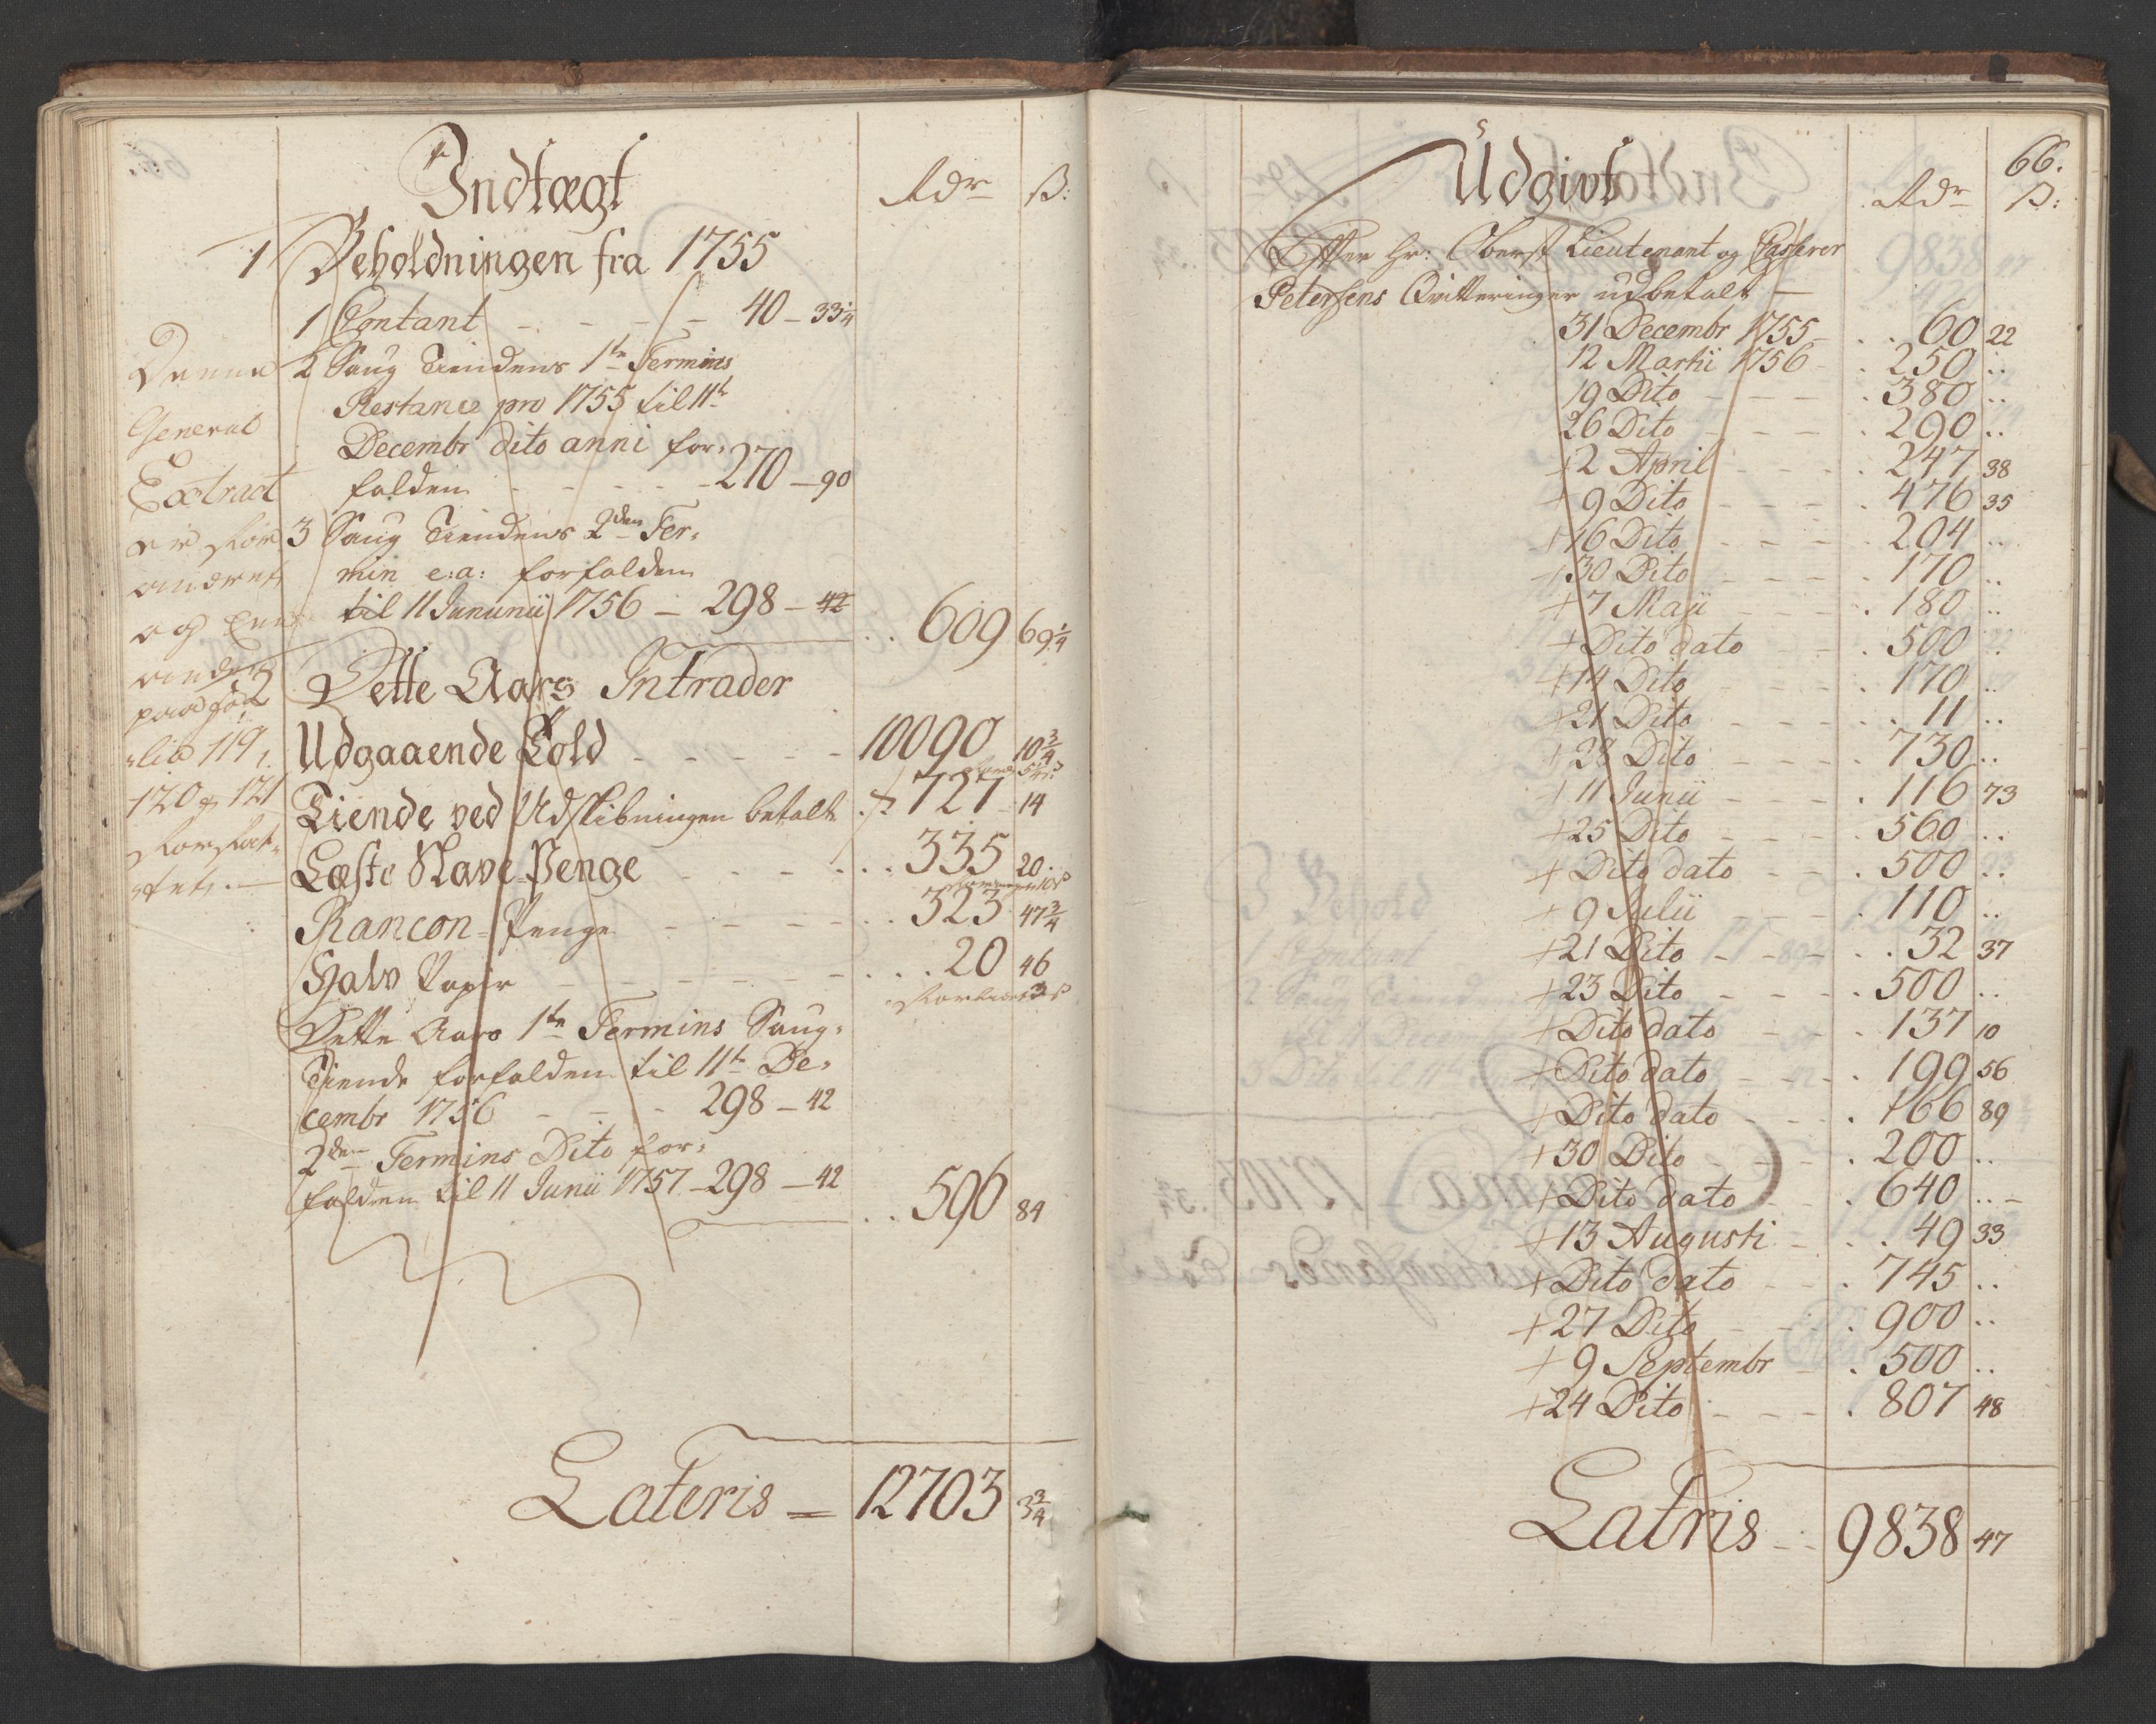 Indtægt
Rdr ß:
1 Beholdningen fra 1755
1 Contant - - - - 40 - 33 1/4
2 Saug Tiendens 1te Termins
Restance pro 1755 til 11te
Decembr dito anni for-
falden - - - - 270 - 90
3 Saug Tiendens 2den Ter-
min e: a: forfalden
til 11 Jununii 1756 - 298 - 42 .. 609 69 1/4
2 Dette Aars Intrader
Udgaaende Told - - - - 10090 10 3/4
Tiende ved Udskibningen betalt 727 14
Læste Slave-Penge - - - 335 20
Rancon-Penge - - - - 323 47 3/4
Hialv Papir - - - - - 20 46
Dette Aars 1te Termins Saug-
Tiende forfalden til 11te De-
cembr 1756 - - - 298 - 42
2den Termins Dito for-
falden til 11 Junii 1757 - 298 - 42 .. 596 84
Lateris = 12703 3 3/4
Denne
General
Extract
er for
andret
og
anden
paa fol
119,
120 & 121
forfat-
tet. -
66.
Udgivt
Rdr ß:
Efter Hr: Oberst Lieutenant og Casserer
Petersens Qvitteringer udbetalt -
31 Decembr 1755 - .. 60 22
12 Martii 1756 - . 250 ..
19 Dito - - - . 380 ..
26 Dito - - - . 290 ..
+ 2 April - - - . 247 38
+ 9 Dito - - - . 476 35
+ 16 Dito - - - . 204 ..
+ 30 Dito - - - . 170 ..
+ 7 Maji - - - . 180 ..
+ Dito dato - - . 500 ..
+ 14 Dito - - - . 170 ..
+ 21 Dito - - - .. 11 ..
+ 28 Dito - - - . 730 ..
+ 11 Junii - - - . 116 73
+ 25 Dito - - - . 560 ..
+ Dito dato - - . 500 ..
+ 9 Julii - - - . 110 ..
+ 21 Dito - - - .. 32 37
+ 23 Dito - - - . 500 ..
+ Dito dato - - . 137 10
+ Dito dato - - . 199 56
+ Dito dato - - . 166 89
+ 30 Dito - - - . 200 ..
+ Dito dato - - . 640 ..
+ 13 Augusti - .. 49 33
+ Dito dato - - . 745 ..
+ 27 Dito - - . 900 ..
+ 9 Septembr - . 500 ..
+ 24 Dito - - - . 807 48
Latris - 9838 47